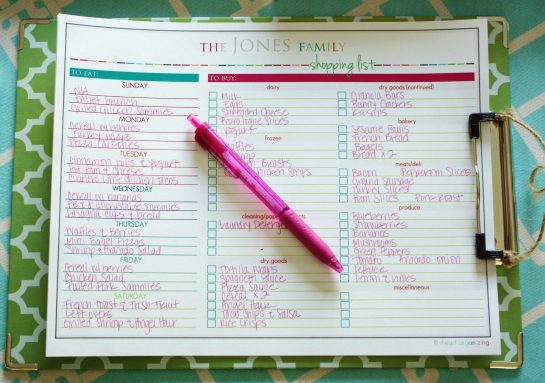 THE JONES FAMILY
shopping list
TO EAT:
SUNDAY
N/A
Smiley Brunch
Grilled Chicken Sammies
MONDAY
Cereal w/ berries
Turkey Wraps
Pizza
TUESDAY
Cinnamon Rolls & Yogurt
Ham & Cheese
Lime Chicken Tacos
WEDNESDAY
Cereal w/ bananas
Sammies
Lasagna Cups & Bread
THURSDAY
Waffles & Berries
Mini Bagel Pizzas
Shrimp & Avocado Salad
FRIDAY
Cereal w/ berries
Chicken Salad
Pulled Pork Sammies
SATURDAY
French Toast & Fresh Fruit
Leftovers
Grilled Shrimp & Angel Hair
TO BUY:
dairy
Milk
Eggs
Shredded Cheese
Provolone Slices
Yogurt
frozen
Waffles
Breasts
Chicken Strips
cleaning/paper
Laundry Detergent
dry goods
Tortilla Wraps
Spaghetti Sauce
Pizza Sauce
Cereal x 2
Angel Hair
Taco Chips & Salsa
Rice Crisps
dry goods (continued)
Granola Bars
Bunny Crackers
Raisins
bakery
Sesame Buns
French Bread
Bagels
Bread x 2
meats/deli
Bacon Pepperoni Slices
Ground Sausage
Turkey Slices
Ham Slices Pork Roast
produce
Blueberries
Strawberries
Bananas
Mushrooms
Green Peppers
Tomato Avocado Onion
Lettuce
Lemon & Limes
miscellaneous